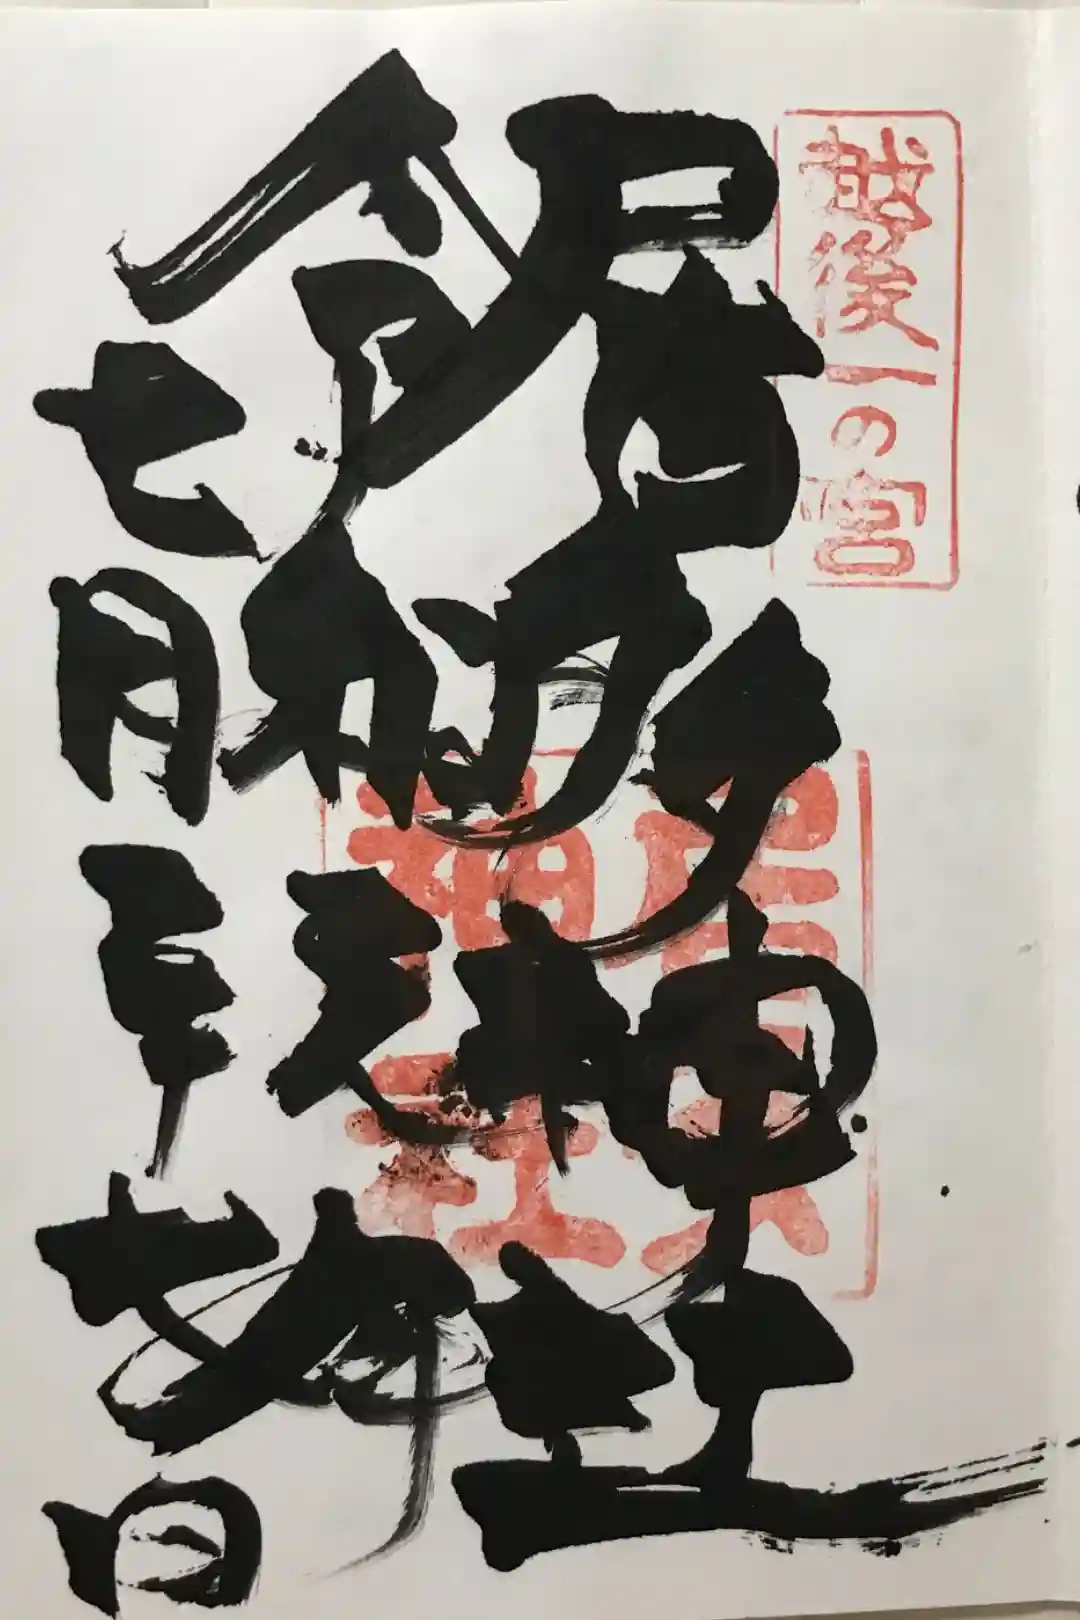 越後一の宮
居多神社
居多神社
令和元年
七月
日